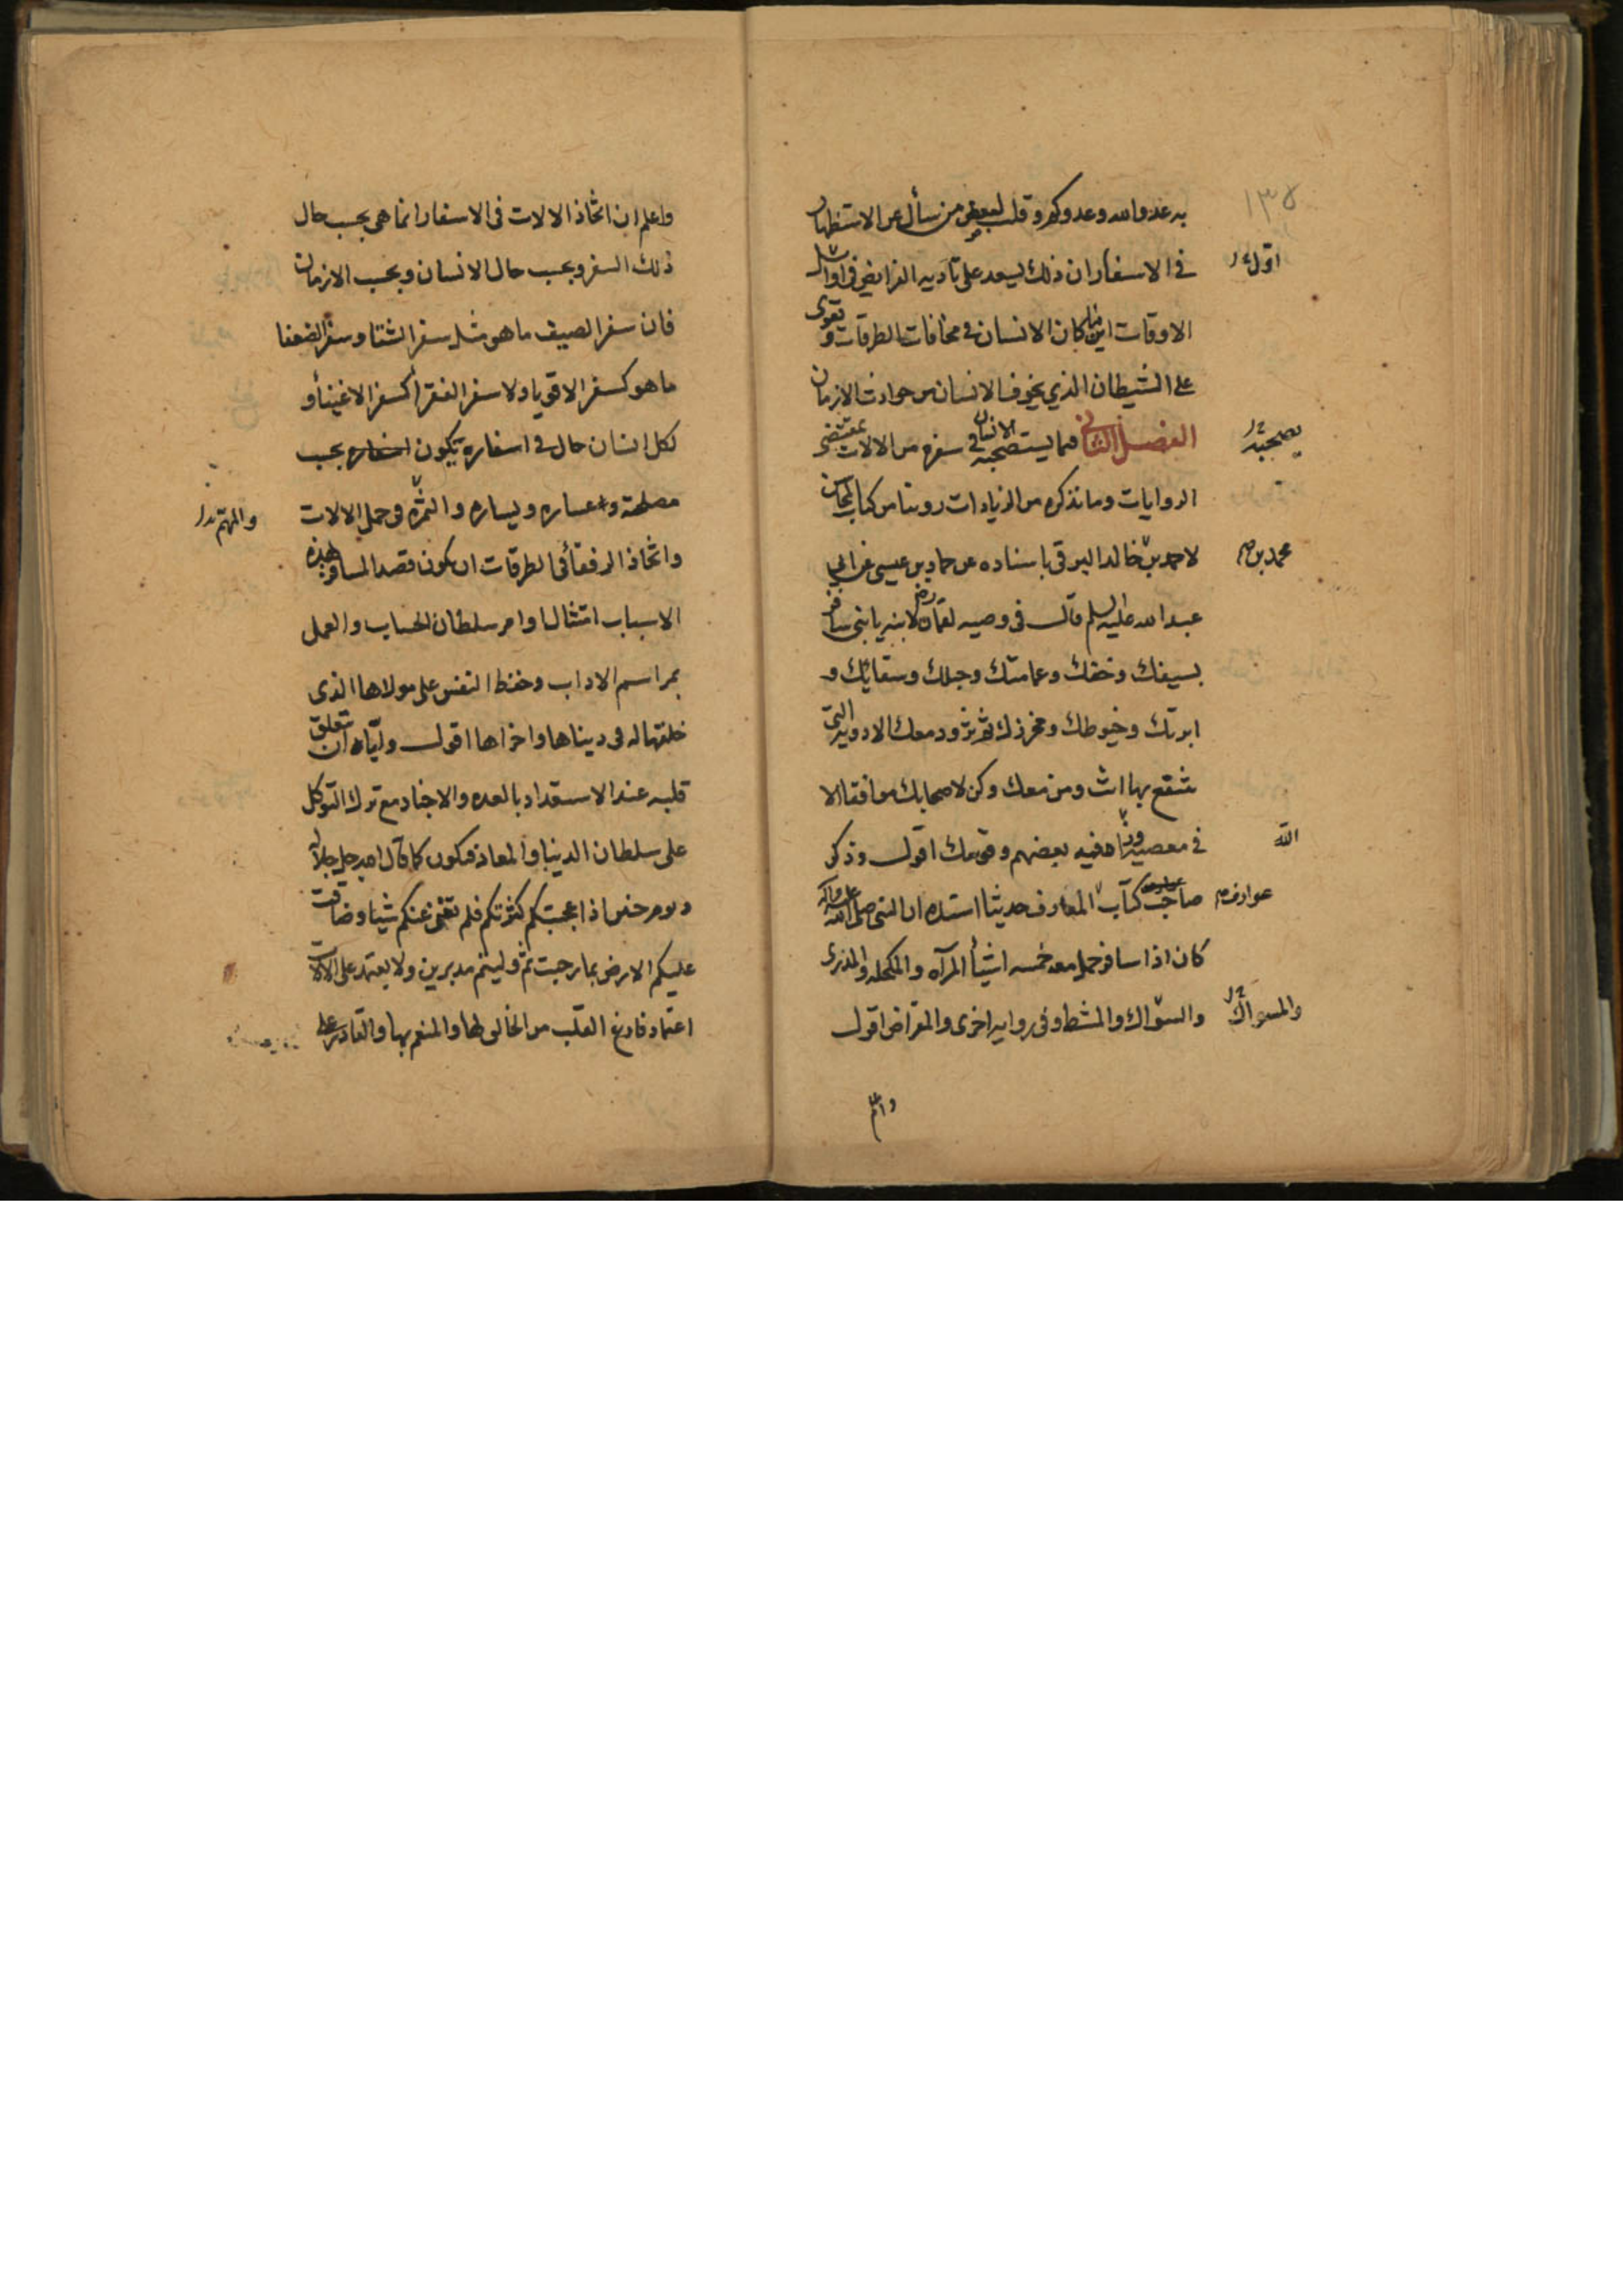 ١٣٥
به عدو الله وعدوكم وقلت لبعض من سأل عن الاستظهار
في الاسفار ان ذلك يسعد على تاديه الفرايض في اوايل
اقول
الاوقات اينما كان الانسان في مخافات الطرقات و تقوى
على الشيطان الذي يخوف الانسان من حوادث الازمان
الفصل الثاني فيما يستصحبه الانسان في سفره من الالات بمقتضى
يصحبه
الروايات وما نذكره من الزيادات روينا من كتاب المحاسن
لاحمد بن خالد البرقي باسناده عن حماد بن عيسى عن ابي
محمد بن صح
عبد الله عليه السلم قال في وصيه لقمان لابنه يا بنى سافر
بسيفك وخفك وعمامتك وحبلك وسقايك و
ابرتك وخيوطك ومخرزك ثم تزود معك الادويه التي
تنتفع بها انت ومن معك وكن لاصحابك موافقا الا
في معصيه وزاد فيه بعضهم وقوسك اقول وذكر
الله
صاحب كتاب المعارف حديثا اسنده ان النبي صلى الله عليه واله
عوارف صح
كان اذا سافر حمل معه خمسه اشيأ المرآه والمكحله والمذرى
والسواك والمشط وفي روايه اخرى والمقراض اقول
والمسواك
واعلم
واعلم ان اتخاذ الالات في الاسفار انما هي بحسب حال
ذلك السفر وبحسب حال الانسان وبحسب الازمان
فان سفر الصيف ما هو مثل سفر الشتا وسفر الضعفا
ما هو كسفر الاقويا ولا سفر الفقرأ كسفر الاغنيأ و
لكل انسان حال في اسفاره يكون اسفاره بحسب
مصلحته واعساره ويساره والثمره في حمل الالات
والمهم
واتخاذ الرفقأ في الطرقات ان يكون قصد المسافر بهذه
الاسباب امتثال اوامر سلطان الحساب والعمل
بمراسم الاداب وحفظ النفس على مولاها الذي
خلقها له في دنياها واخراها اقول واياه ان تتعلق
قلبه عند الاستعداد بالعده والاجناد مع ترك التوكل
على سلطان الدنيا والمعاد فيكون كما قال الله جل جلاله
ويوم حنين اذ اعجبتكم كثرتكم فلم تغني عنكم شيئا وضاقت
عليكم الارض بما رحبت ثم وليتم مدبرين ولا يعتمد على الالات
اعتماد فارغ القلب من الخالق لها والمنعم بها والقادر على